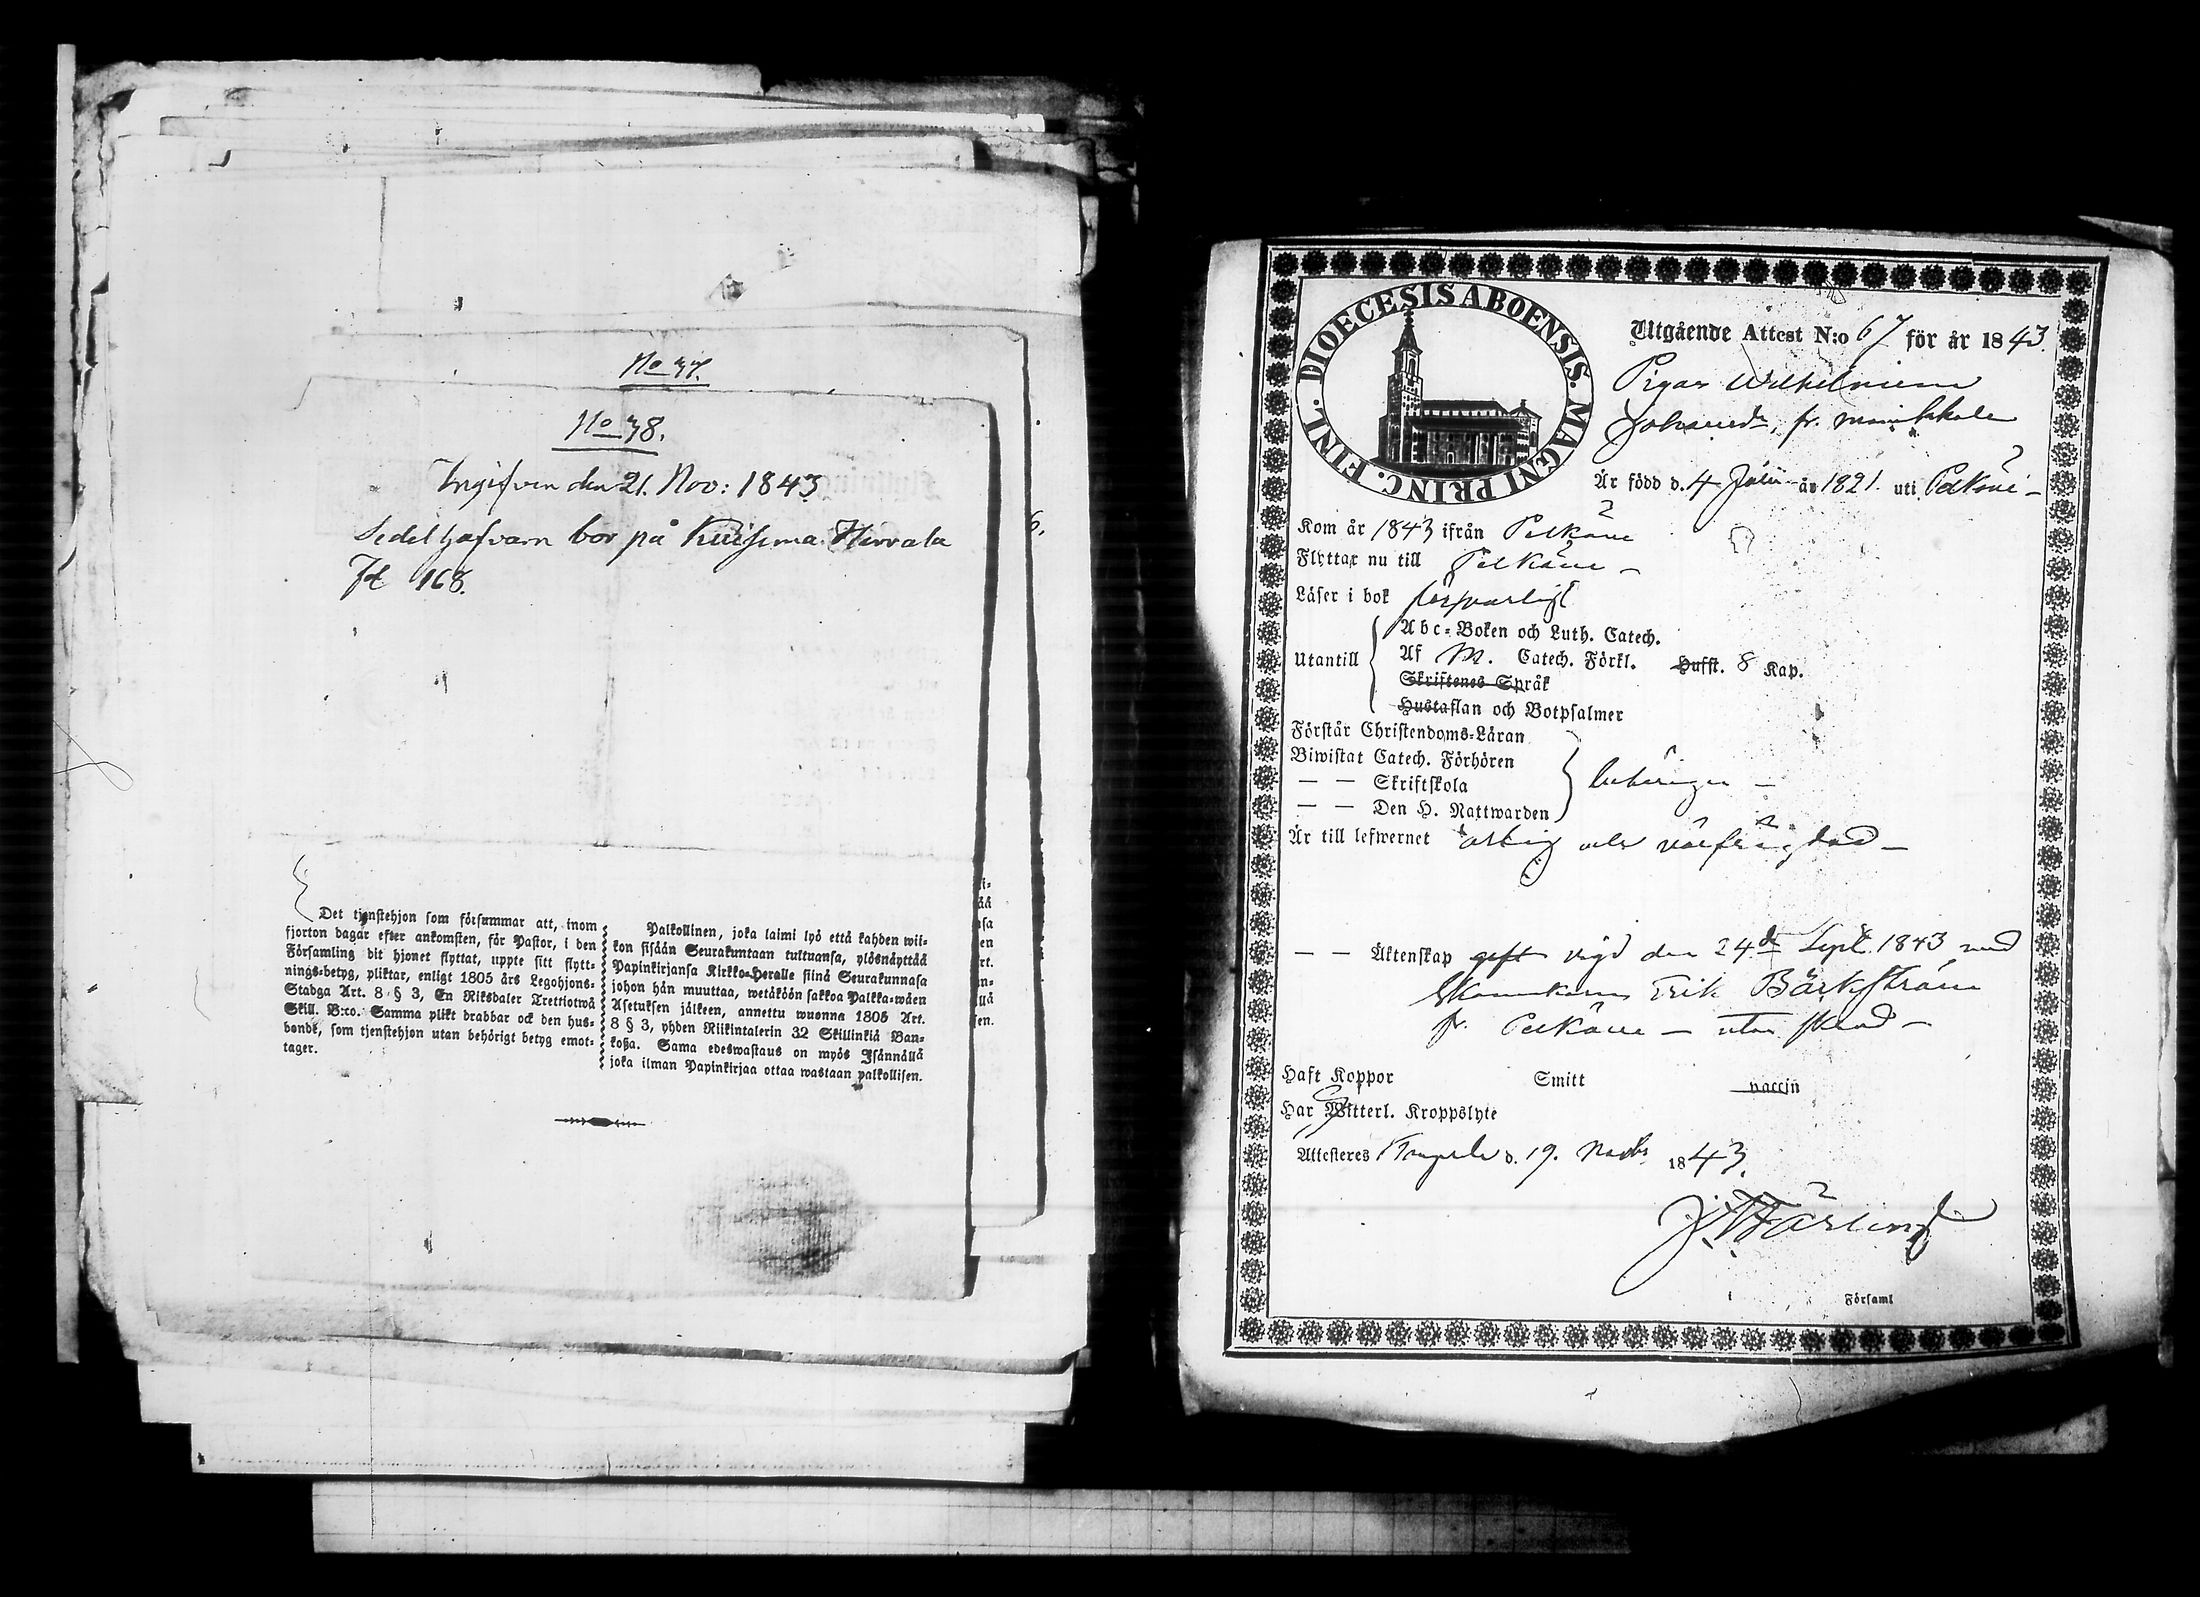 No 37.
No 38.
Ingifven den 21. Nov: 1843
Sedelhafvarn bor på Kuisema Hirvala
Pt 168.
Det tjenstehjon som försummar att, inom
fjorton dagar efter ankomsten, för Pastor, i den
Församling dit hjonet flyttat, uppte sitt flytt-
nings-betyg, pliktar, enligt 1805 års Legohjons-
Stadga Art. 8 § 3, En Riksdaler Trettiotwå
Skill. B:co. Samma plikt drabbar ock den hus-
bonde, som tjenstehjon utan behörigt betyg emot-
tager.
Palkollinen, joka laimi lyö että kahden wii-
kon sisään Seurakuntaan tultuansa, ylösnäyttää
Papinkirjansa Kirkko-Heralle siinä Seurakunnasa
johon hän muuttaa, wetäköön sakkoa Palkka-wäen
Asetuksen jälkeen, annettu wuonna 1805 Art.
8 § 3, yhden Riikintalerin 32 Skillinkiä Ban-
koßa. Sama edeswastaus on myös Isännällä
joka ilman Papinkirjaa ottaa wastaan palkollisen.
DIOECESIS ABOENSIS. MAGNI PRINC. FINL.
Utgående Attest N:o 67 för år 1843.
Pigan Wilhelmina
Johansdr, fr.
Är född d. 4 Julii år 1821 uti Pelkäne
Kom år 1843 ifrån Pelkäne
Flyttar nu till Pelkäne
Läser i bok försvarligt
Utantill
Abc-Boken och Luth. Catech.
Af M. Catech. Förkl. Hufst. 8 Kap.
Skriftenes Språk
Hustaflan och Botpsalmer
Förstår Christendoms-Läran
Biwistat Catech. Förhören
— — Skriftskola
— — Den H. Nattwarden
Är till lefwernet ärlig och väl
— — Äktenskap gift vigd den 24de Sept. 1843 med
Erik Bärkström
fr. Pelkäne — utan
Haft Koppor Smitt vaccin
Har Witterl. Kroppslyte
Attesteres d. 19. Novbr 1843.
Församl